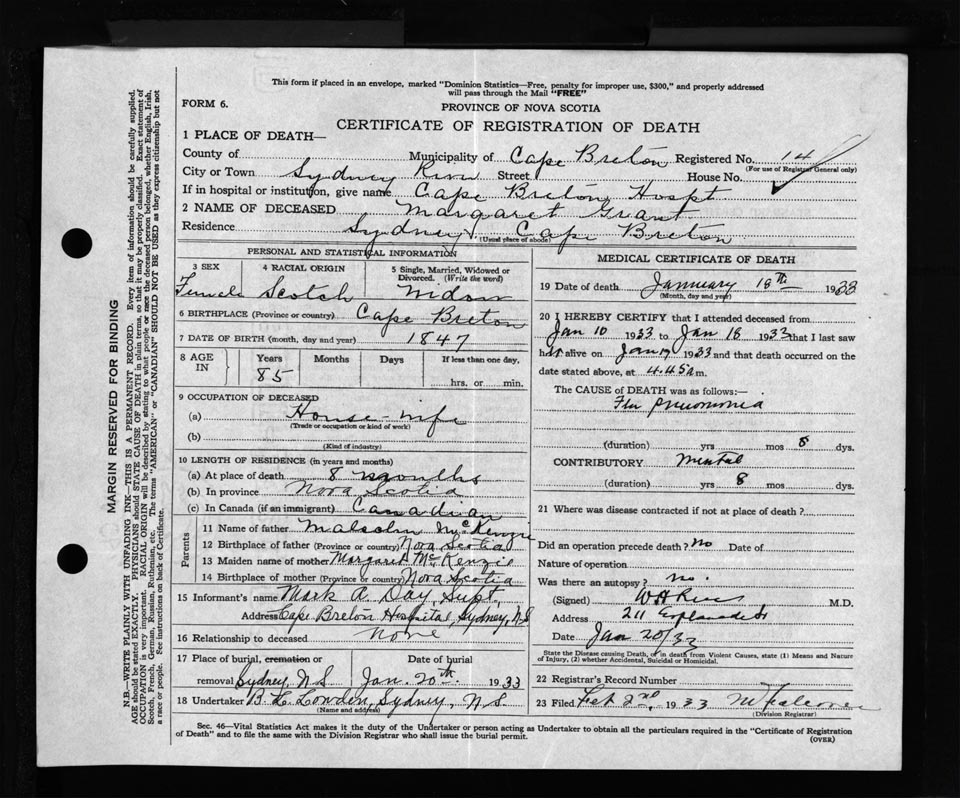 This form if placed in an envelope, marked "Dominion Statistics—Free, penalty for improper use, $300," and properly addressed
will pass through the Mail "FREE"
FORM 6.
PROVINCE OF NOVA SCOTIA
CERTIFICATE OF REGISTRATION OF DEATH
1 PLACE OF DEATH—
County of Municipality of Cape Breton Registered No. 14
(For use of Registrar General only)
City or Town Sydney River Street House No.
If in hospital or institution, give name Cape Breton Hospt
2 NAME OF DECEASED Margaret Grant
Residence Sydney Cape Breton
(Usual place of abode)
PERSONAL AND STATISTICAL INFORMATION
3 SEX 4 RACIAL ORIGIN 5 Single, Married, Widowed or
Divorced. (Write the word)
Female Scotch Widow
6 BIRTHPLACE (Province or country) Cape Breton
7 DATE OF BIRTH (month, day and year) 1847
8 AGE IN Years Months Days If less than one day,
85 hrs. or min.
9 OCCUPATION OF DECEASED
(a) House-wife
(Trade or occupation or kind of work)
(b)
(Kind of industry)
10 LENGTH OF RESIDENCE (in years and months)
(a) At place of death 8 months
(b) In province Nova Scotia
(c) In Canada (if an immigrant) Canadian
Parents
11 Name of father Malcolm McKenzie
12 Birthplace of father (Province or country) Nova Scotia
13 Maiden name of mother Margaret McKenzie
14 Birthplace of mother (Province or country) Nova Scotia
15 Informant's name Mark A. Day, Supt,
Address Cape Breton Hospital, Sydney, N.S
16 Relationship to deceased None
17 Place of burial, cremation or Date of burial
removal Sydney, N.S Jan. 20th. 1933
18 Undertaker Sydney, N.S.
(Name and address)
MEDICAL CERTIFICATE OF DEATH
19 Date of death January 18th 1933
(Month, day and year)
20 I HEREBY CERTIFY that I attended deceased from
Jan 10 1933 to Jan 18 1933 that I last saw
her alive on Jan 17 1933 and that death occurred on
date stated above, at 4.45 a m.
The CAUSE of DEATH was as follows:
Flu pneumonia
(duration) yrs mos 8 dys.
CONTRIBUTORY Mental
(duration) yrs 8 mos dys.
21 Where was disease contracted if not at place of death?
Did an operation precede death? No Date of
Nature of operation
Was there an autopsy? no.
(Signed) M.D.
Address 211 Esplanade St
Date Jan 20/33
State the Disease causing Death, or in death from Violent Causes, state (1) Means and Nature
of Injury, (2) whether Accidental, Suicidal or Homicidal.
22 Registrar's Record Number
23 Filed Feb 2nd, 1933
(Division Registrar)
Sec. 46—Vital Statistics Act makes it the duty of the Undertaker or person acting as Undertaker to obtain all the particulars required in the "Certificate of Registration
of Death" and to file the same with the Division Registrar who shall issue the burial permit.
(OVER)
MARGIN RESERVED FOR BINDING
N.B.—WRITE PLAINLY WITH UNFADING INK—THIS IS A PERMANENT RECORD. Every item of information should be carefully supplied.
AGE should be stated EXACTLY. PHYSICIANS should STATE CAUSE OF DEATH in plain terms, so that it may be properly classified. Exact statement of
OCCUPATION is very important. RACIAL ORIGIN will be described by stating to what people or race the deceased person belonged, whether English, Irish,
Scotch, French, German, Russian, Ruthenian, etc. The terms "AMERICAN" or "CANADIAN" SHOULD NOT BE USED as they express citizenship but not
a race or people. See instructions on back of Certificate.